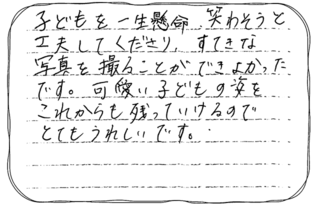 子どもを一生懸命、笑わそうと
工夫してくださり、すてきな
写真を撮ることができよかった
です。可愛い子どもの姿を
これからも残っていけるので
とてもうれしいです。